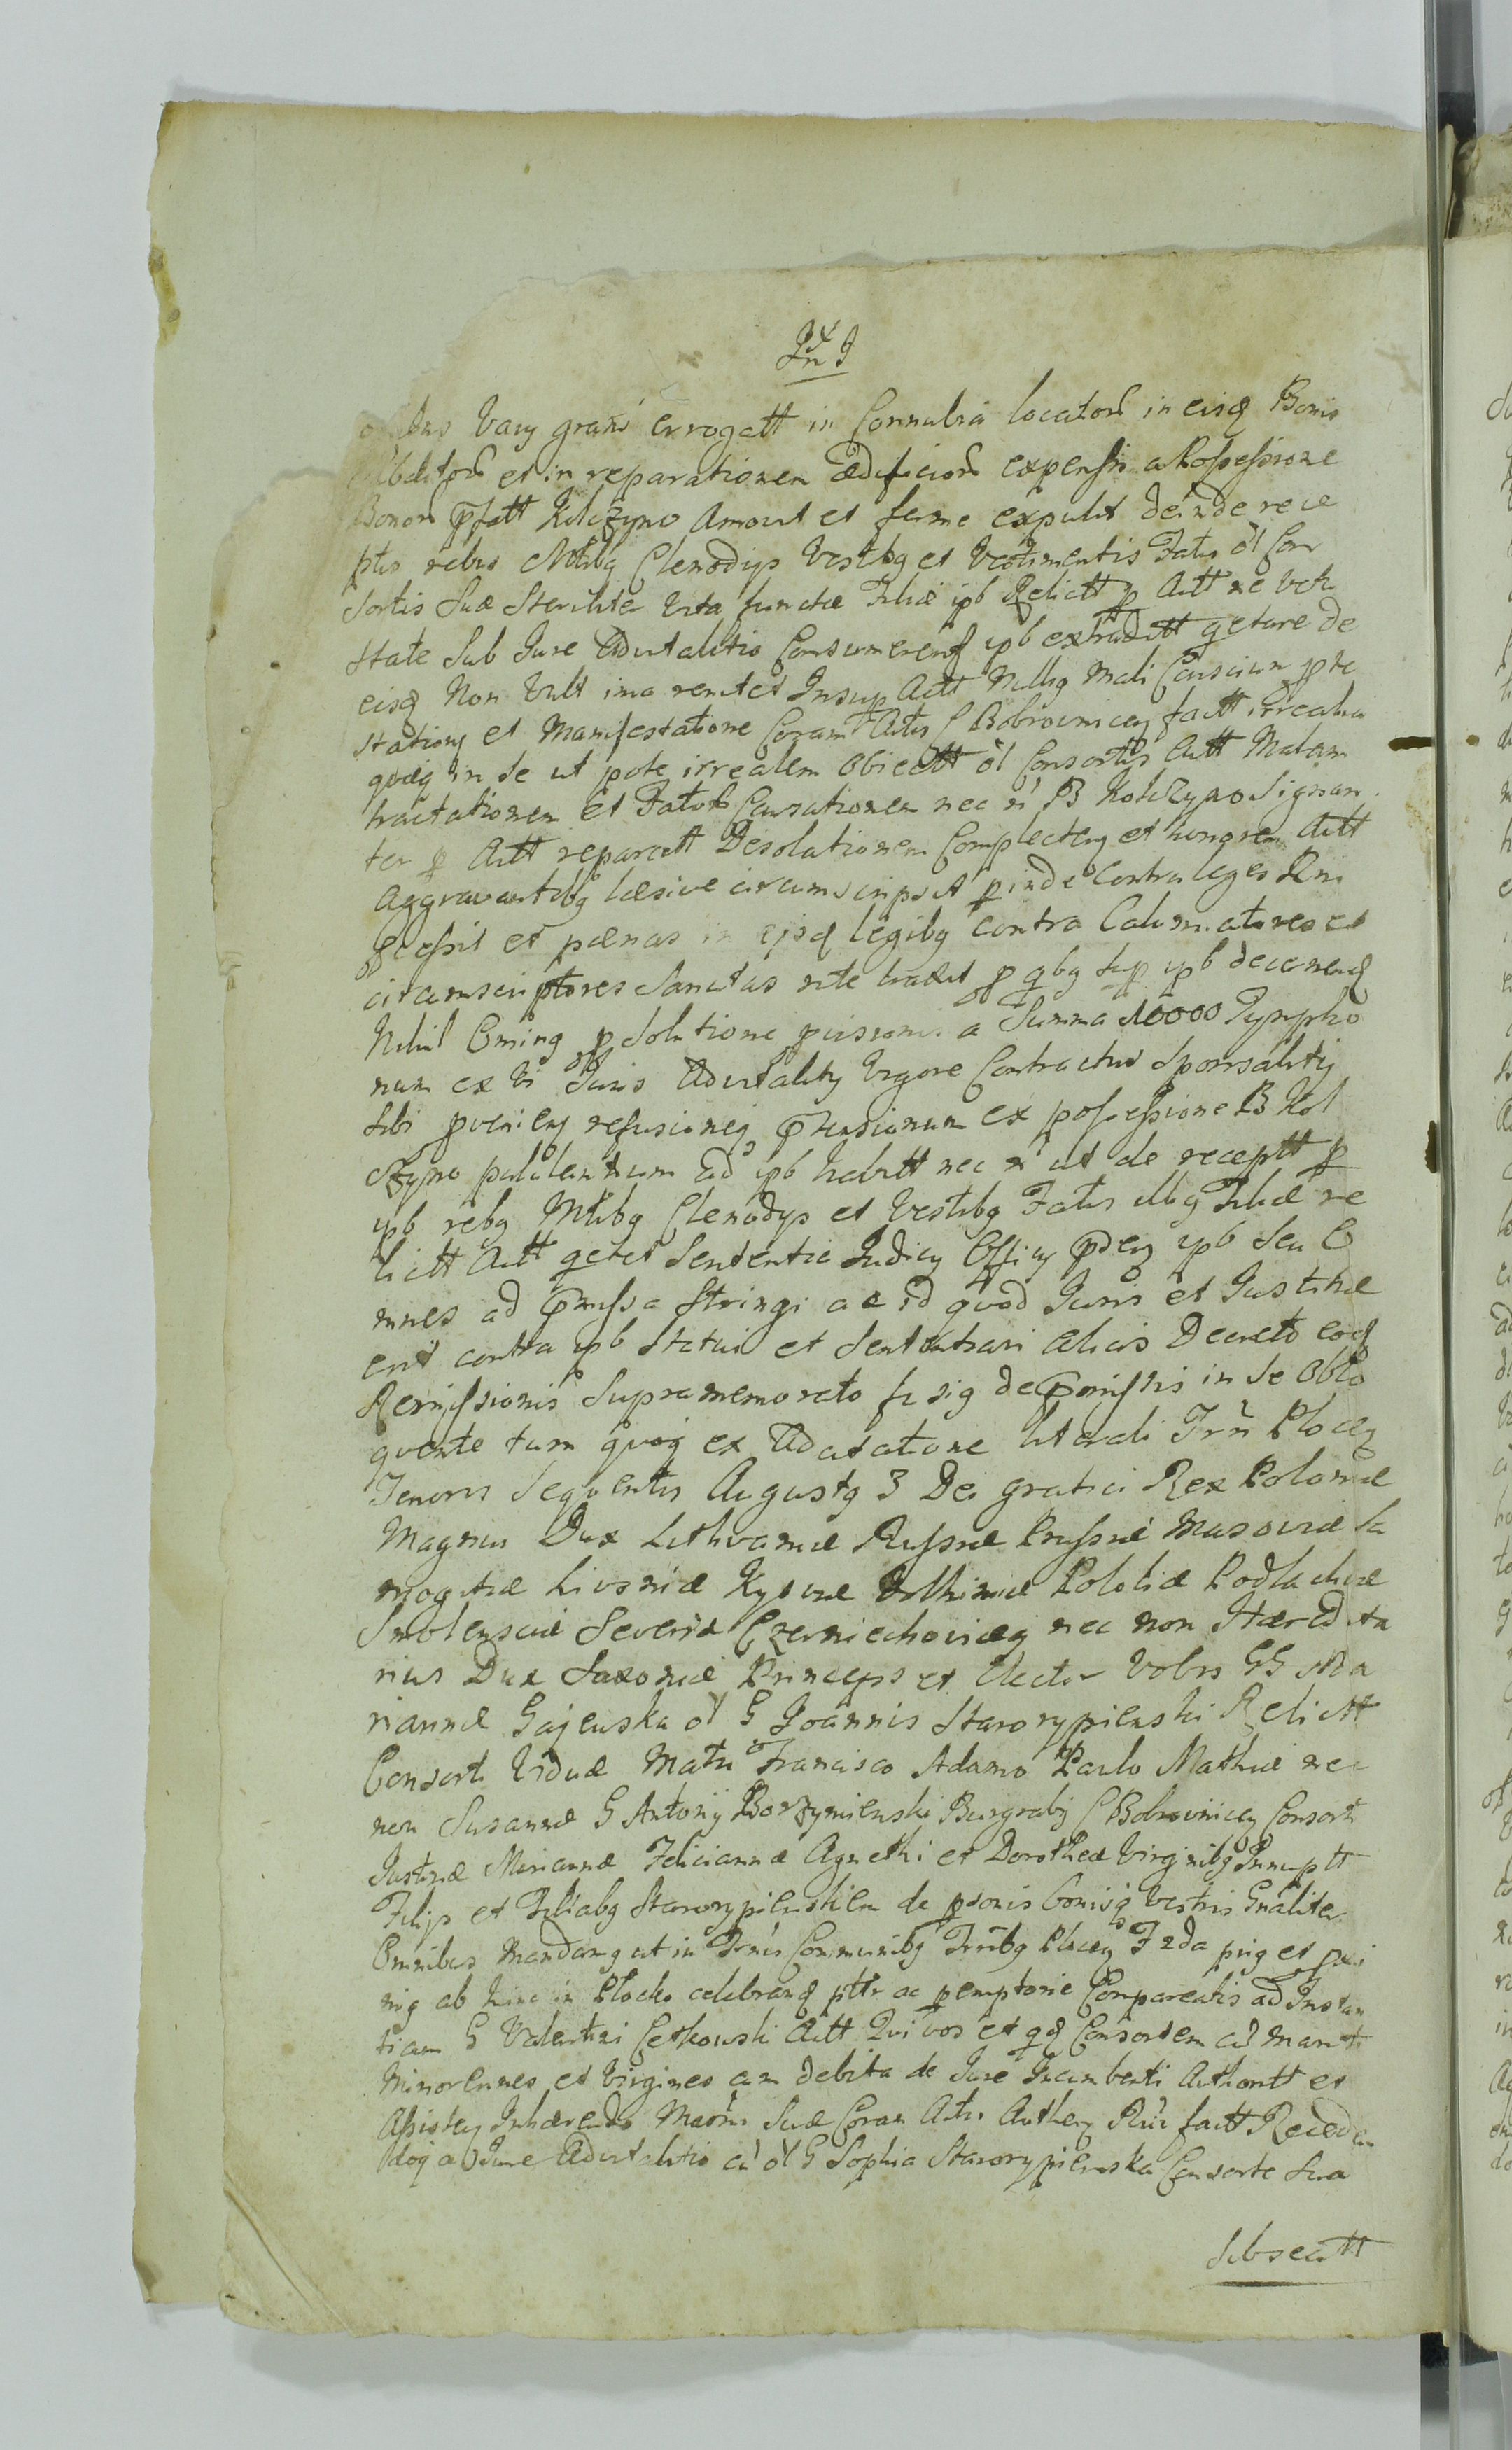 In J
Vary grani errogatt in Connubia locator in eisq Bonis
et in reparationem ædificior expensis a Possessione
Bonor pfatt Kolczyno Amovit et ferme expulit deinde rece
ptis rebus Mlibq Clenodys Vestibq et Vestimentis Fatis ol Con
sortis Suæ Steriliter Vita functæ Filiæ ipb Relictt p Actt ne Vetu
state Sub Jure Advitalitio Consumerenq ipb extraditt qetare de
eisq Non Vult imo renitet Insup Actt Nullig Mali Conscium pte
stationg et Manifestatione Coram Actis C Bobrovnicen factt irrealia
quæq in Se ut pote irrealem Obiectt ol Consortis Actt Malam
tractationem et Fator Causationem nec n B Kolczyno Signan
ter p Actt reparatt Desolationem Complecten et honorem Actt
Aggravantibq læsive circumscripsit pinde Contra leges Rni
pcessit et pænas in ejsq legibq contra Calumniatores et
circumscriptores Sancitas rite luat p qbq Sup ipb decernenq
Nihil Oming p Solutione pvisionis a Summa 10000 Tympho
num ex Vi Juris Advitality Vigore Contractus Sponsality
Sibi pvenien refusioneq ptensionum ex possessione B Kol
czyno pululantium ad ipb habitt nec n ut de receptt p
ipb rebq Mlibq Clenodys et Vestibq Fatis ollig Filiæ re
lictt Actt qetet Sententia Judicy Officy pden ipb Seu O
mnes ad pmissa Stringi ac id quod Juris et Justitiæ
erit contra ipb Statui et Sententiari alias Decreto eoq
Remissionis Supramemorato fusig de pmissis in Se Oblo
quente tum quoq ex Adcitatione literali Trn Plocen
Tenoris Sequentis Augustq 3 Dei gratia Rex Poloniæ
Magnus Dux Lithvaniæ Russiæ Prussiæ Masoviæ Sa
mogitiæ Livoniæ Kyoviæ Volhiniæ Podoliæ Podlachiæ
Smolensciæ Severiæ Czerniechoviæq nec non Hæredita
rius Dux Saxoniæ Princeps et Elector Vobis GG Ma
riannæ Gajewska ol G Joannis Starorypienski Relictt
Consorti Viduæ Matri Francisco Adamo Paulo Mathiæ nec
non Susannæ G Antony Borzymienski Burgraby C Bobrovnicen Consorti
Justinæ Mariannæ Feliciannæ Agnethi et Dorotheæ Virginibq Innuptt
Filys et Filiabq Starorypienskim de psonis Bonisq Vestris Gnaliter
Omnibus Mandamq ut in Trnis Communibq Trribq Plocen Fzda prig et pxi
mig ab hinc in Plocko celebranq pttr ac pemptorie Compareatis ad Instan
tiam G Valentini Cetkowski Actt Qui vos et qq Consortem cu Marito
Minorennes et Virgines cum debita de Jure Incumbenti Authoritt et
Assisten Inhærendo Manni Suæ Coram Actis Authen Rni factt Receden
doq a Jure Advitalitio cu ol G Sophia Starorypienska Consorte Sua
Subsecutt